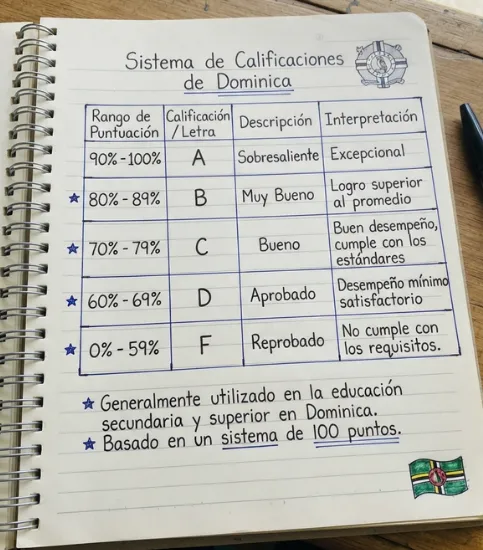 Sistema de Calificaciones
de Dominica
Rango de Puntuación | Calificación / Letra | Descripción | Interpretación
90% - 100% | A | Sobresaliente | Excepcional
★ 80% - 89% | B | Muy Bueno | Logro superior al promedio
★ 70% - 79% | C | Bueno | Buen desempeño, cumple con los estándares
★ 60% - 69% | D | Aprobado | Desempeño mínimo satisfactorio
★ 0% - 59% | F | Reprobado | No cumple con los requisitos.
★ Generalmente utilizado en la educación
secundaria y superior en Dominica.
★ Basado en un sistema de 100 puntos.